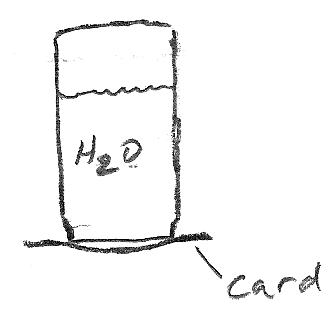 H2O
card